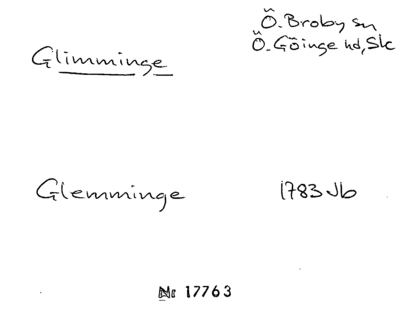 Ö. Broby sn
Glimminge Ö. Göinge hd, Sk
Glemminge 1783 Jb
Nr 17763